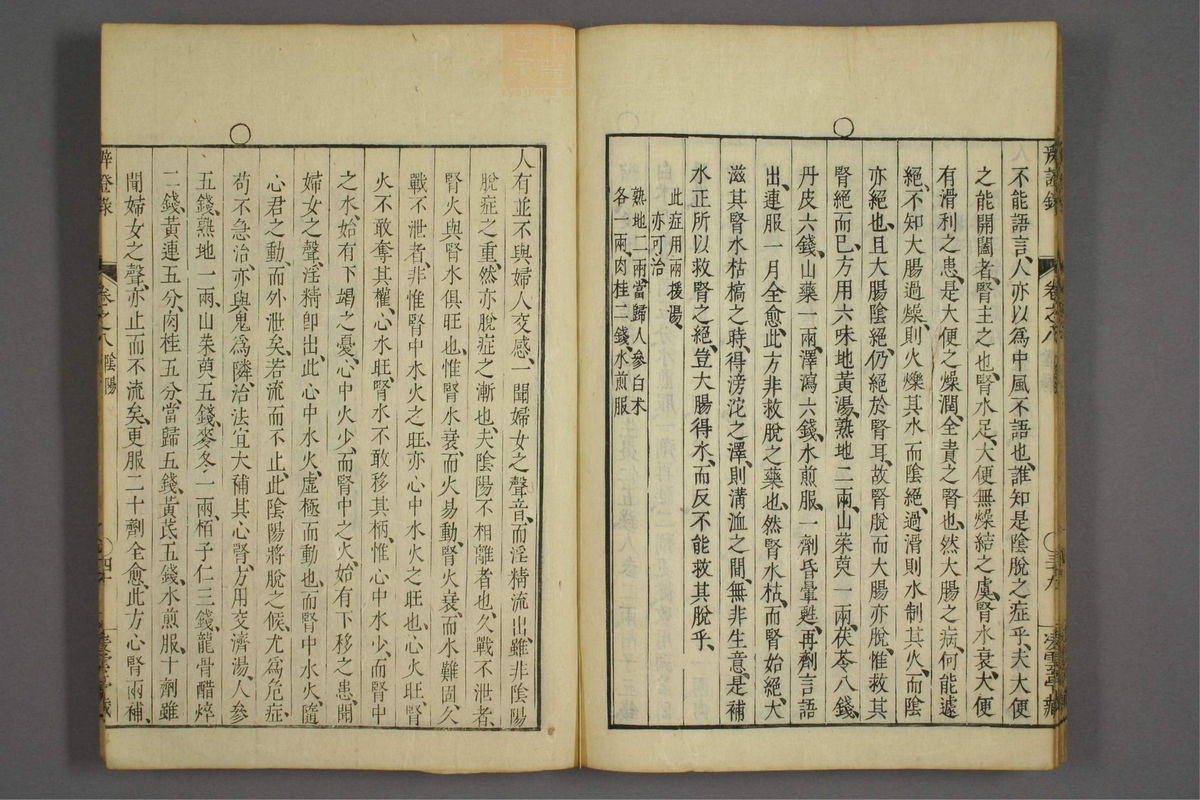 不能語言、人亦以為中風不語也、誰知是陰脫之症乎、夫大便
之能開闔者、腎主之也、腎水足、大便無燥結之虞、腎水衰、大便
有滑利之患、是大便之燥潤、全責之腎也、然大腸之病、何能遽
絕、不知大腸過燥、則火爍其水而陰絕、過滑則水制其火、而陰
亦絕也、且大腸陰絕、仍絕於腎耳、故腎脫而大腸亦脫、惟救其
腎絕而已、方用六味地黃湯、熟地二兩、山茱萸一兩、茯苓八錢、
丹皮六錢、山藥一兩、澤瀉六錢、水煎服、一劑昏暈甦、再劑言語
出、連服一月全愈、此方非救脫之藥也、然腎水枯、而腎始絕、大
滋其腎水枯槁之時、得滂沱之澤、則溝洫之間、無非生意、是補
水正所以救腎之絕、豈大腸得水、而反不能救其脫乎、
此症用兩援湯、
亦可治
熟地二兩、當歸人參白术
各一兩、肉桂二錢水煎服
人有並不與婦人交感、一聞婦女之聲音、而淫精流出、雖非陰陽
脫症之重、然亦脫症之漸也、夫陰陽不相離者也、久戰不泄者、
腎火與腎水俱旺也、惟腎水衰、而火易動、腎火衰、而水難固、久
戰不泄者、非惟腎中水火之旺、亦心中水火之旺也、心火旺、腎
火不敢奪其權、心水旺、腎水不敢移其柄、惟心中水少、而腎中
之水、始有下竭之憂、心中火少、而腎中之火、始有下移之患、聞
婦女之聲、淫精即出、此心中水火、虛極而動也、而腎中水火、隨
心君之動、而外泄矣、若流而不止、此陰陽將脫之候、尤為危症、
苟不急治、亦與鬼為隣、治法宜大補其心腎、方用交濟湯、人參
五錢、熟地一兩、山茱萸五錢、麥冬一兩、栢子仁三錢、龍骨醋焠
二錢、黃連五分、肉桂五分、當歸五錢、黃芪五錢、水煎服、十劑雖
聞婦女之聲、亦止而不流矣、更服二十劑全愈、此方心腎兩補、
辨證錄 卷之八 陰陽 四